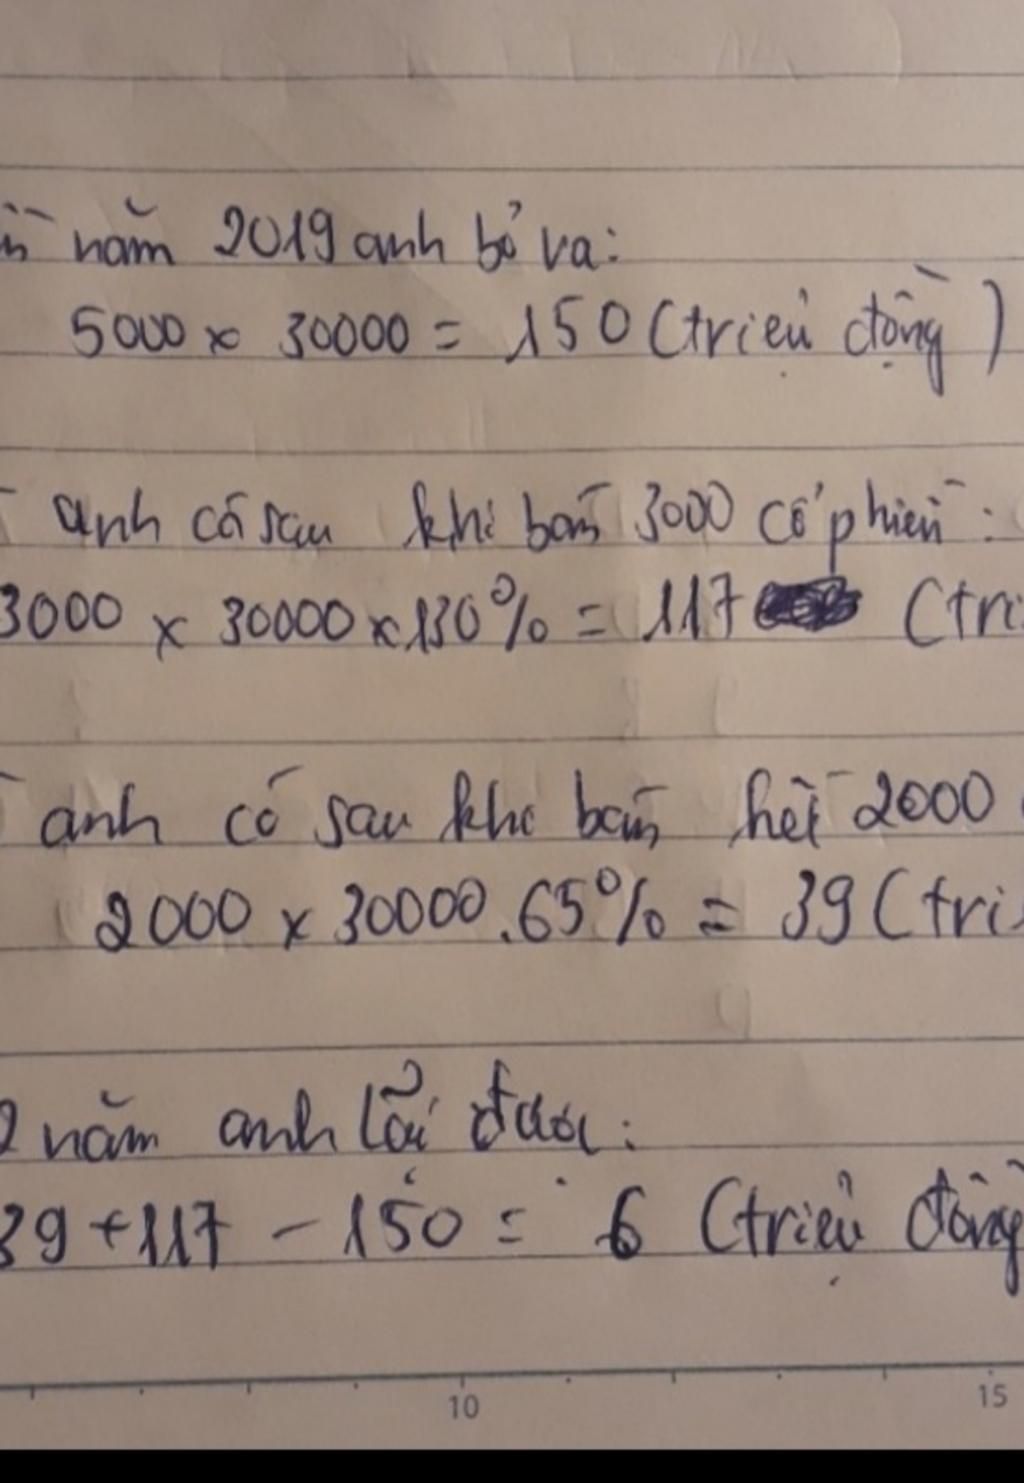 năm 2019 anh bỏ ra:
5000 x 30000 = 150 (triệu đồng)
anh có sau khi bán 3000 cổ phiếu:
3000 x 30000 x 130% = 117 (tri
anh có sau khi bán hết 2000
2000 x 30000.65% = 39 (tri
2 năm anh lãi được:
39 + 117 - 150 = 6 (triệu đồng
10 15